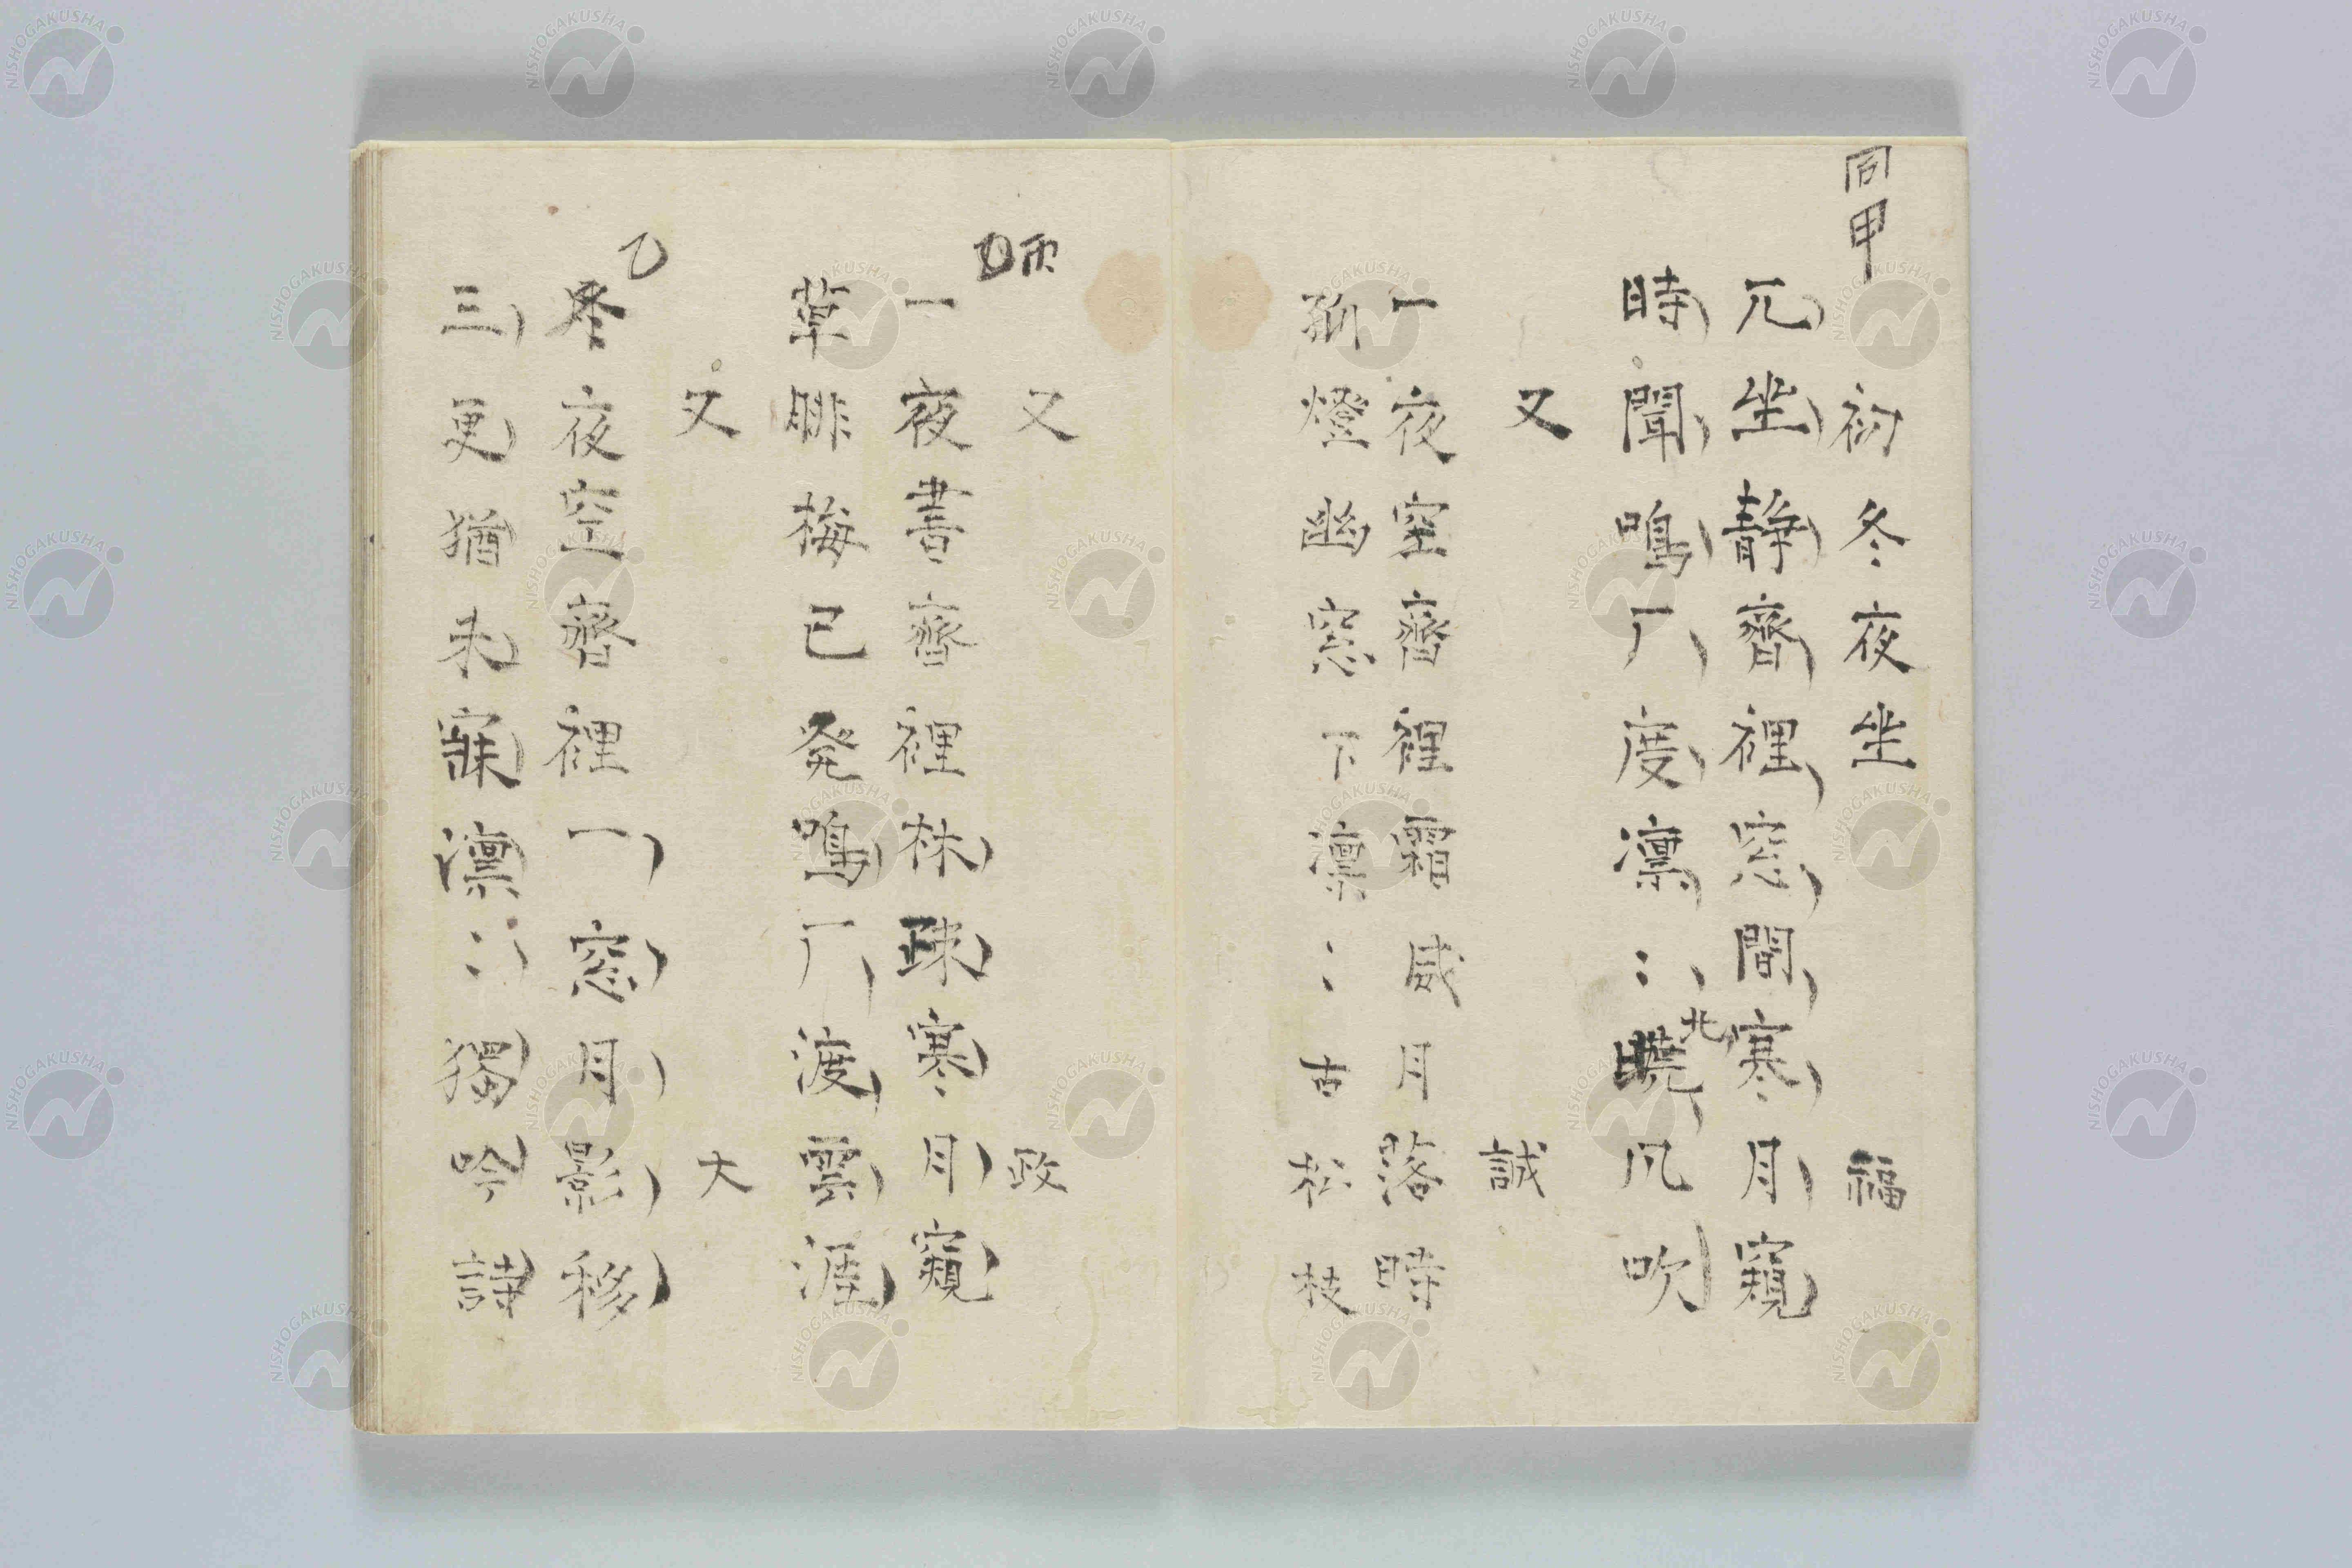 同甲
初冬夜坐 福
兀坐静齋裡窓間寒月窺
時聞鳴厂度凛〻暁北风吹
又 誠
一夜空齋裡霜威月落時
孤燈幽窓下凛〻古松枝
丙
又 政
一夜書齋裡林疎寒月窺
草腓梅已発鳴厂渡雲涯
又 大
乙
冬夜空齋裡一窓月影移
三更猶未寐凛〻獨吟詩
NISHOGAKUSHA